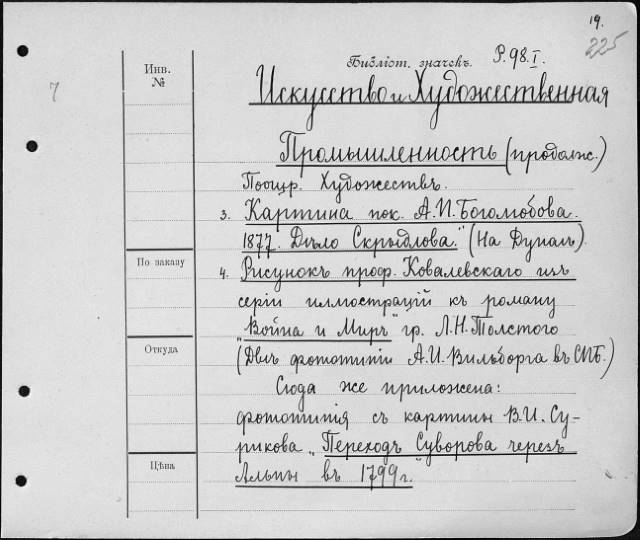 19.
225
7
Инв. №
Библіот. значекъ. Р.98.I.
Искусство и Художественная
Промышленность (продолж.)
Поощр. Художествъ.
3. Картина пок. А.П.Боголюбова.
1877. Дѣло Скрыдлова." (На Дунаѣ).
По заказу
4. Рисунокъ проф. Ковалевскаго изъ
серіи иллюстрацій къ роману
"Война и Миръ" гр. Л.Н.Толстого
Откуда
(Двѣ фототипіи А.И.Вильборга въ СПБ.)
Сюда же приложена:
фототипія съ картины В.И.Су-
рикова "Переходъ Суворова черезъ
Цѣна
Альпы въ 1799г."